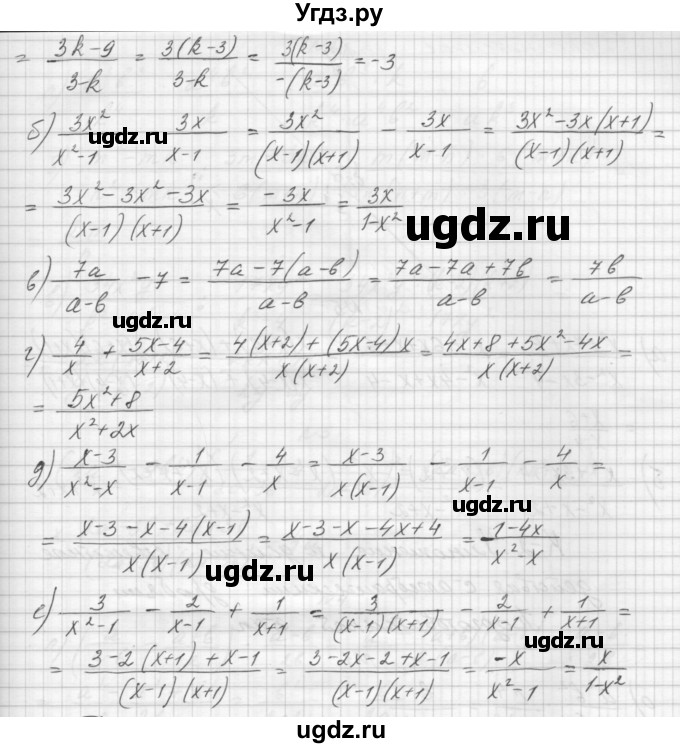 Угдз.ру
= (3k-9)/(3-k) = 3(k-3)/(3-k) = 3(k-3)/(-(k-3)) = -3
б) 3x²/(x²-1) - 3x/(x-1) = 3x²/((x-1)(x+1)) - 3x/(x-1) = (3x²-3x(x+1))/((x-1)(x+1)) =
ugdz.ru
ugdz.ru
= (3x²-3x²-3x)/((x-1)(x+1)) = -3x/(x²-1) = 3x/(1-x²)
ugdz.ru
в) 7a/(a-b) - 7 = (7a-7(a-b))/(a-b) = (7a-7a+7b)/(a-b) = 7b/(a-b)
ugdz.ru
г) 4/x + (5x-4)/(x+2) = (4(x+2)+(5x-4)x)/(x(x+2)) = (4x+8+5x²-4x)/(x(x+2)) =
= (5x²+8)/(x²+2x)
ugdz.ru
д) (x-3)/(x²-x) - 1/(x-1) - 4/x = (x-3)/(x(x-1)) - 1/(x-1) - 4/x =
ugdz.ru
= (x-3-x-4(x-1))/(x(x-1)) = (x-3-x-4x+4)/(x(x-1)) = (1-4x)/(x²-x)
ugdz.ru
е) 3/(x²-1) - 2/(x-1) + 1/(x+1) = 3/((x-1)(x+1)) - 2/(x-1) + 1/(x+1) =
ugdz.ru
= (3-2(x+1)+x-1)/((x-1)(x+1)) = (3-2x-2+x-1)/((x-1)(x+1)) = -x/(x²-1) = x/(1-x²)
ugdz.ru
ugdz.ru